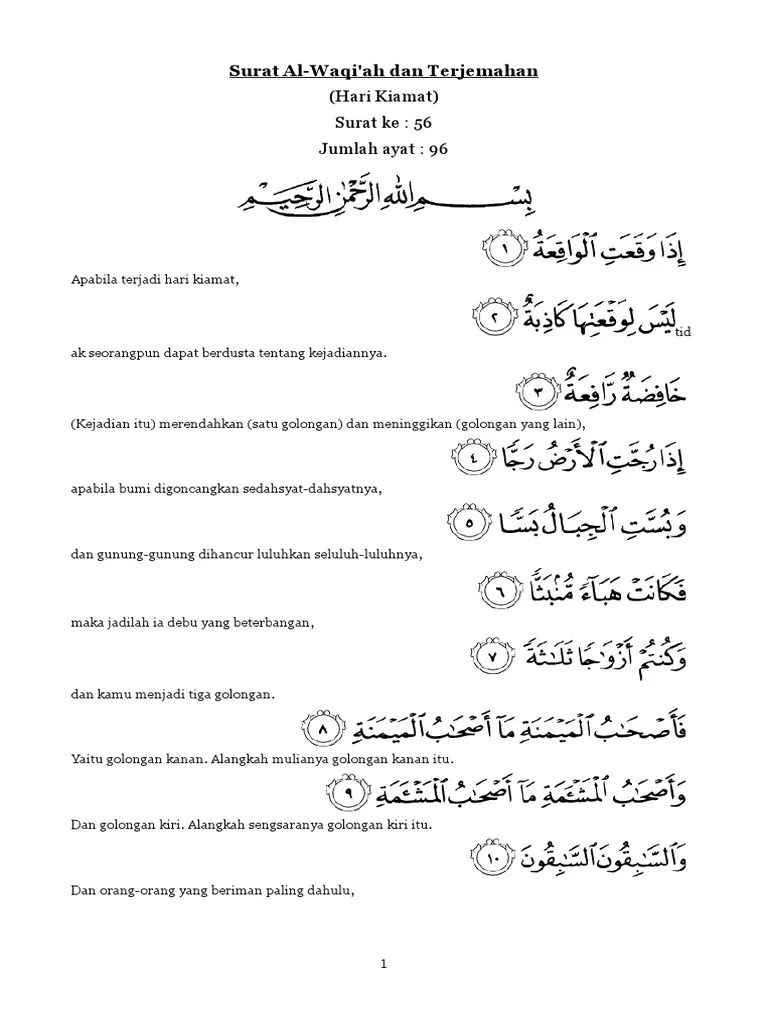 Surat Al-Waqi'ah dan Terjemahan
(Hari Kiamat)
Surat ke : 56
Jumlah ayat : 96
بِسْمِ اللهِ الرَّحْمٰنِ الرَّحِيْمِ
إِذَا وَقَعَتِ ٱلْوَاقِعَةُ ١
Apabila terjadi hari kiamat,
لَيْسَ لِوَقْعَتِهَا كَاذِبَةٌ ٢
tid
ak seorangpun dapat berdusta tentang kejadiannya.
خَافِضَةٌ رَّافِعَةٌ ٣
(Kejadian itu) merendahkan (satu golongan) dan meninggikan (golongan yang lain),
إِذَا رُجَّتِ ٱلْأَرْضُ رَجًّا ٤
apabila bumi digoncangkan sedahsyat-dahsyatnya,
وَبُسَّتِ ٱلْجِبَالُ بَسًّا ٥
dan gunung-gunung dihancur luluhkan seluluh-luluhnya,
فَكَانَتْ هَبَآءً مُّنۢبَثًّا ٦
maka jadilah ia debu yang beterbangan,
وَكُنتُمْ أَزْوَٰجًا ثَلَـٰثَةً ٧
dan kamu menjadi tiga golongan.
فَأَصْحَـٰبُ ٱلْمَيْمَنَةِ مَآ أَصْحَـٰبُ ٱلْمَيْمَنَةِ ٨
Yaitu golongan kanan. Alangkah mulianya golongan kanan itu.
وَأَصْحَـٰبُ ٱلْمَشْـَٔمَةِ مَآ أَصْحَـٰبُ ٱلْمَشْـَٔمَةِ ٩
Dan golongan kiri. Alangkah sengsaranya golongan kiri itu.
وَٱلسَّـٰبِقُونَ ٱلسَّـٰبِقُونَ ١٠
Dan orang-orang yang beriman paling dahulu,
1